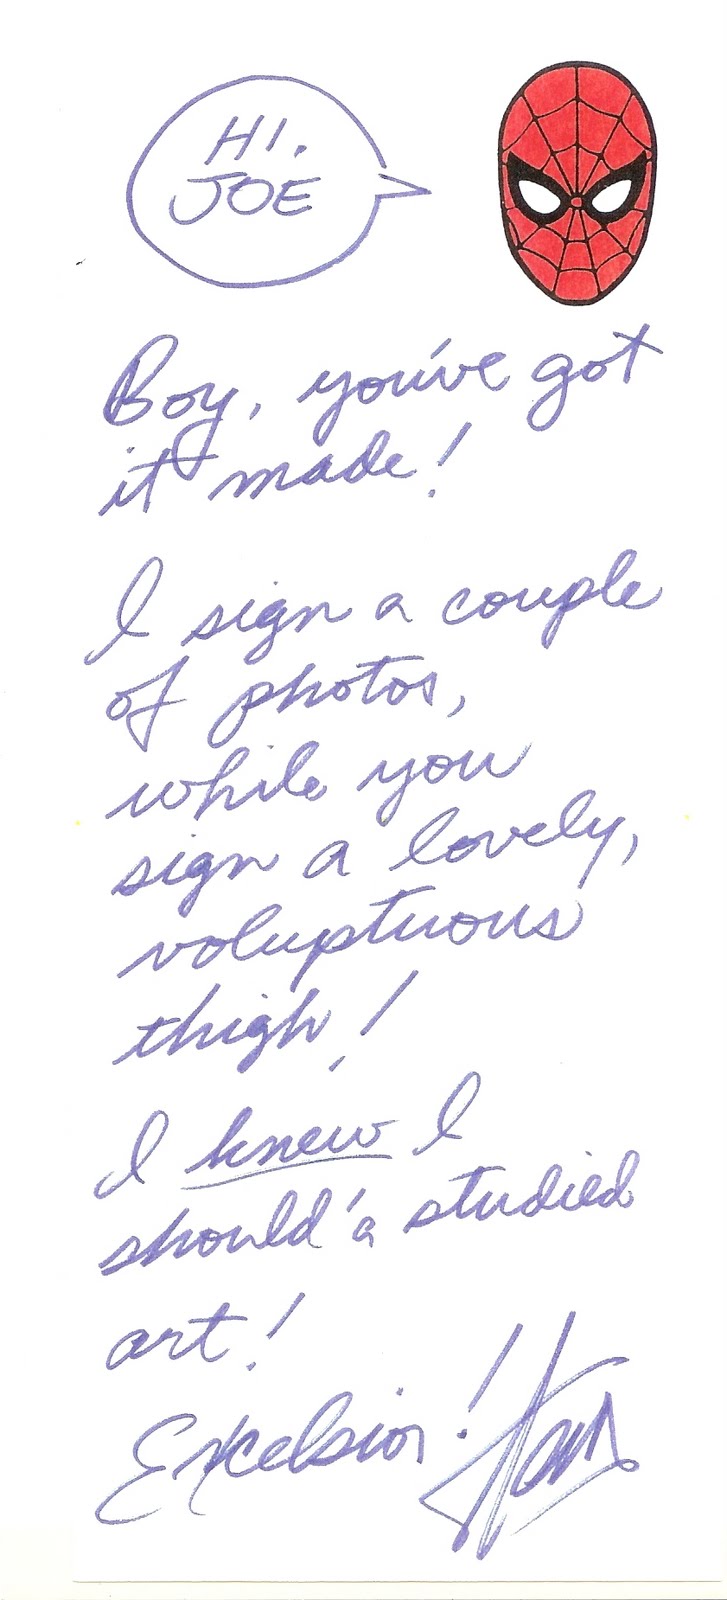 HI.
JOE
Boy, you've got
it made!
I sign a couple
of photos,
while you
sign a lovely,
voluptuous
thigh!
I knew I
should'a studied
art!
Excelsior! Stan